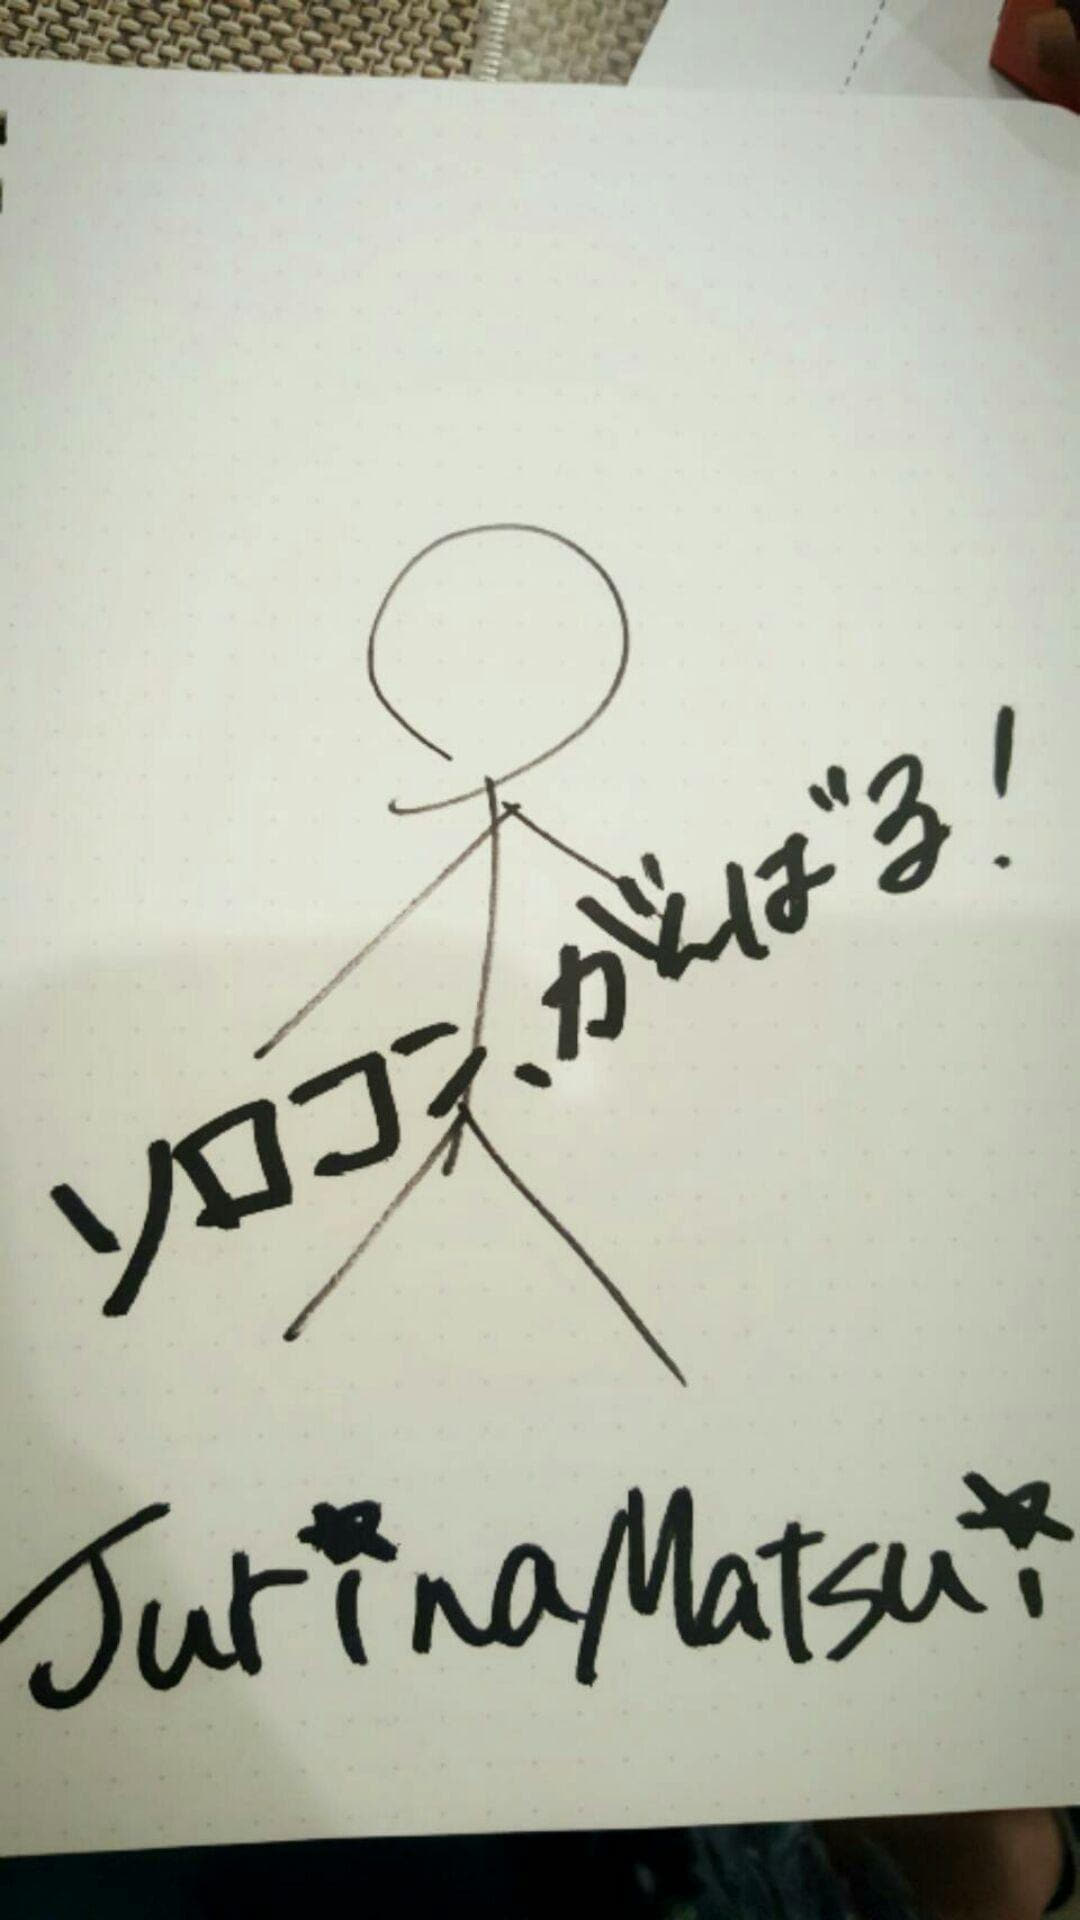 ソロコン、がんばる!
Jurina Matsui